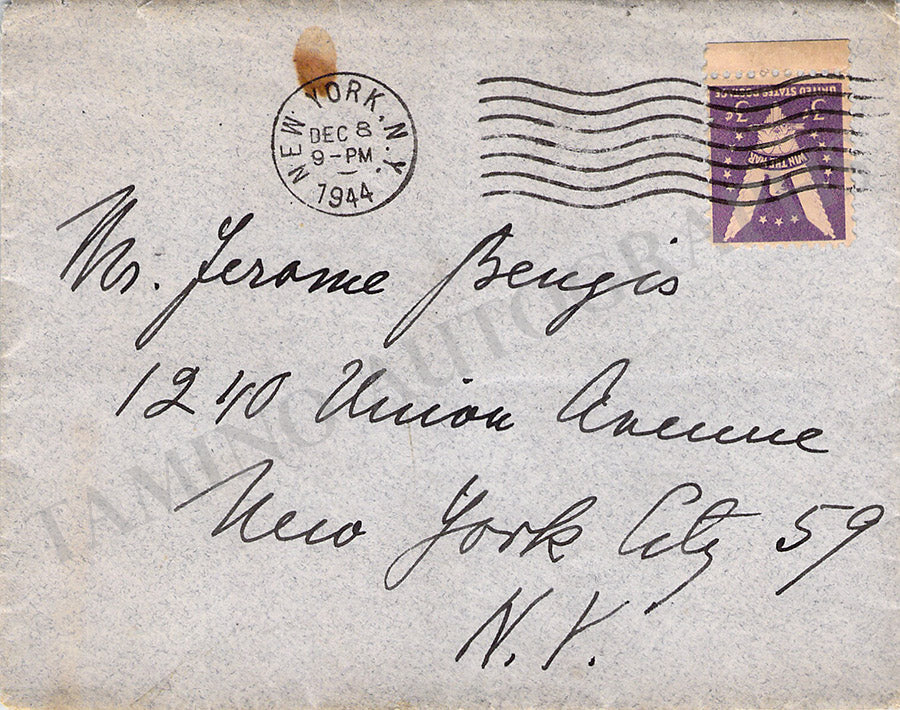 NEW YORK, N.Y.
DEC 8
9-PM
1944
UNITED STATES POSTAGE
3¢ 3¢
WIN THE WAR
Mr. Jerome Bengis
1240 Union Avenue
New York City 59
N.Y.
TAMINO AUTOGRAPHS